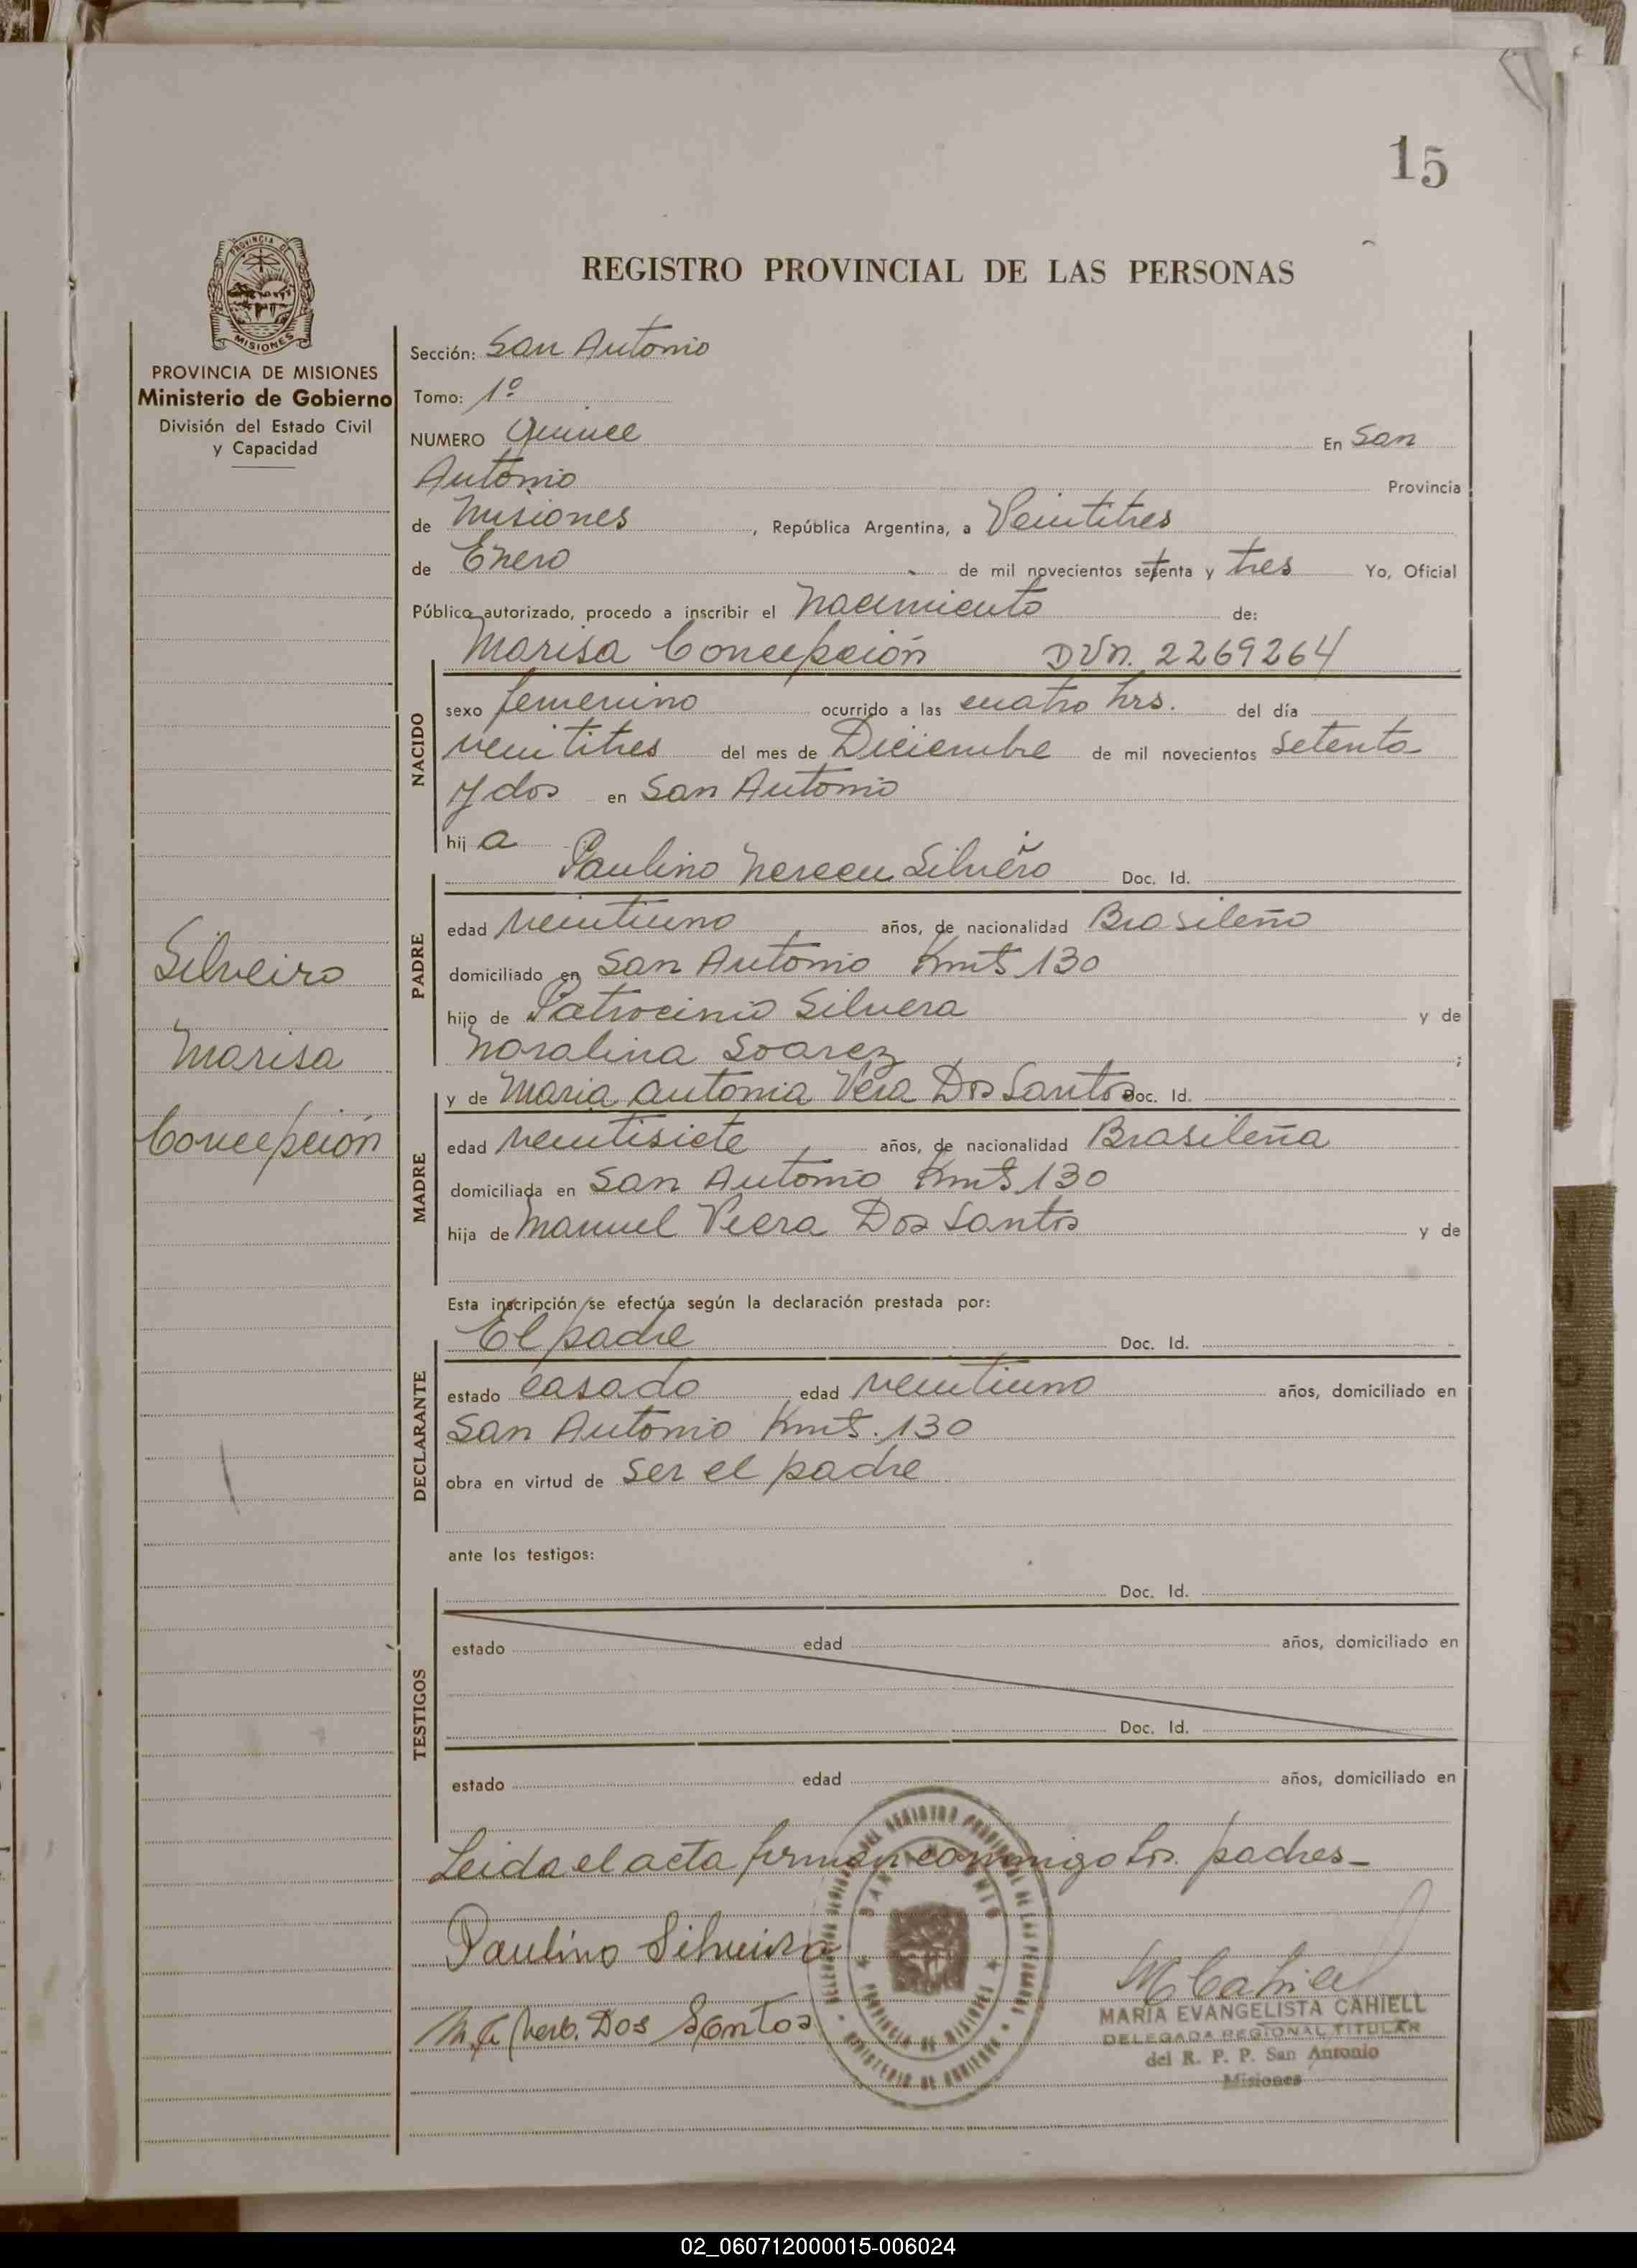 15
REGISTRO PROVINCIAL DE LAS PERSONAS
PROVINCIA DE
MISIONES
PROVINCIA DE MISIONES
Ministerio de Gobierno
División del Estado Civil
y Capacidad
Silveiro
Marisa
Concepción
Sección: San Antonio
Tomo: 1º
NUMERO Quince En San
Antonio Provincia
de Misiones, República Argentina, a Veintitres
de Enero de mil novecientos setenta y tres Yo, Oficial
Público autorizado, procedo a inscribir el nacimiento de:
Marisa Concepción DVN. 2269264
NACIDO
sexo femenino ocurrido a las cuatro hrs. del día
veintitres del mes de Diciembre de mil novecientos setenta
y dos en San Antonio
hij a
Paulino Nereeu Silveiro Doc. Id.
PADRE
edad veintiuno años, de nacionalidad Brasileño
domiciliado en San Antonio Kmts 130
hijo de Patrocinio Silvera y de
Noralina Soarez ;
y de Maria Antonia Vera Dos Santos Doc. Id.
MADRE
edad veintisiete años, de nacionalidad Brasileña
domiciliada en San Antonio Kmts 130
hija de Manuel Viera Dos Santos y de
Esta inscripción se efectúa según la declaración prestada por:
El padre Doc. Id.
DECLARANTE
estado casado edad veintiuno años, domiciliado en
San Antonio Kmts. 130
obra en virtud de ser el padre
ante los testigos:
Doc. Id.
TESTIGOS
estado edad años, domiciliado en
Doc. Id.
estado edad años, domiciliado en
Leida el acta firman conmigo los padres_
Paulino Silveira
Dos Santos
MCahiell
MARIA EVANGELISTA CAHIELL
DELEGADA REGIONAL TITULAR
del R. P. P. San Antonio
Misiones
SAN ANTONIO
PROVINCIA DE MISIONES
MINISTERIO DE GOBIERNO
02_060712000015-006024